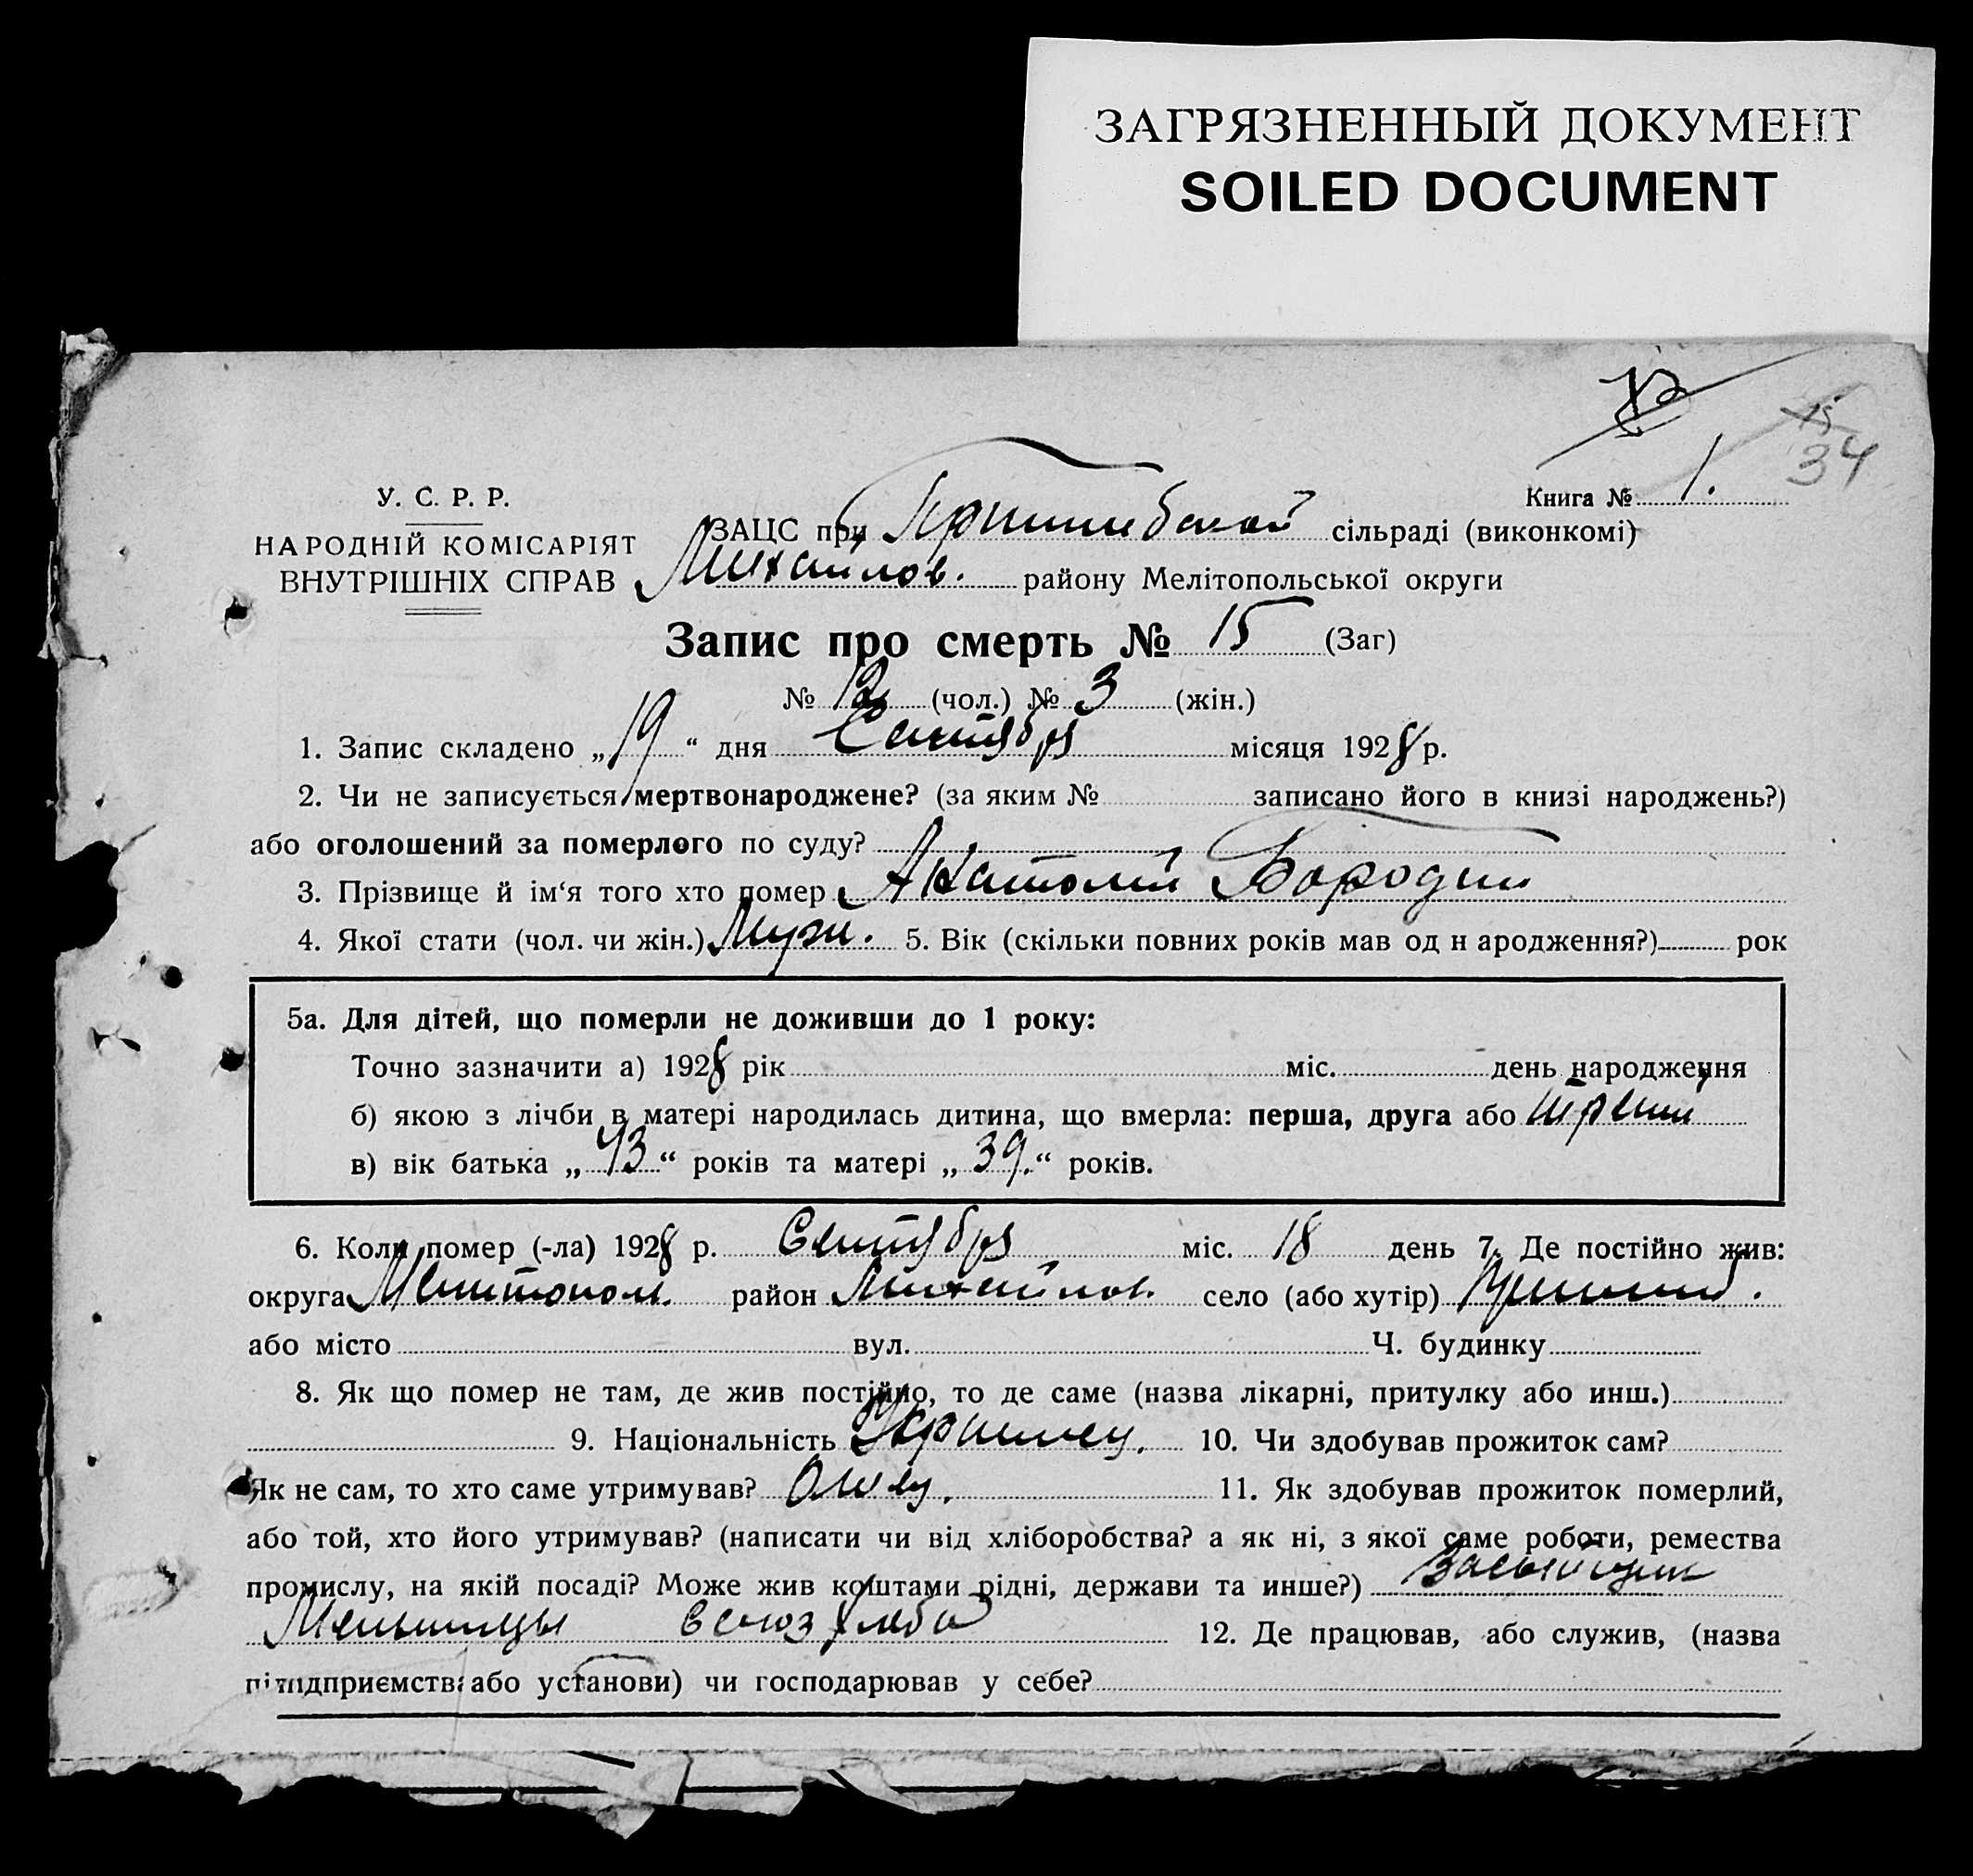 ЗАГРЯЗНЕННЫЙ ДОКУМЕНТ
SOILED DOCUMENT
15
34
У. С. Р. Р.
НАРОДНІЙ КОМІСАРІЯТ
ВНУТРІШНІХ СПРАВ
Книга № 1.
ЗАЦС при Пришибской сільраді (виконкомі)
Михайлов. району Мелітопольської округи
Запис про смерть № 15 (Заг)
№ 12 (чол.) № 3 (жін.)
1. Запис складено „19“ дня Сентября місяця 1928 р.
2. Чи не записується мертвонароджене? (за яким № записано його в книзі народжень?)
або оголошений за померлого по суду?
3. Прізвище й ім‘я того хто помер Анатолий Бородин
4. Якої стати (чол. чи жін.) Муж. 5. Вік (скільки повних років мав од н ародження?) рок
5а. Для дітей, що померли не доживши до 1 року:
Точно зазначити а) 1928 рік міс. день народження
б) якою з лічби в матері народилась дитина, що вмерла: перша, друга або третий
в) вік батька „43“ років та матері „39.“ років.
6. Коли помер (-ла) 1928 р. Сентября міс. 18 день 7. Де постійно жив:
округа Мелитопол. район Михайлов. село (або хутір) Пришиб.
або місто вул. Ч. будинку
8. Як що помер не там, де жив постійно, то де саме (назва лікарні, притулку або инш.)
9. Національність 10. Чи здобував прожиток сам?
Як не сам, то хто саме утримував? Отец. 11. Як здобував прожиток померлий,
або той, хто його утримував? (написати чи від хліборобства? а як ні, з якої саме роботи, ремества
промислу, на якій посаді? Може жив коштами рідні, держави та инше?) Засыпщик
Мельницы Союзхлеба 12. Де працював, або служив, (назва
підприємства або установи) чи господарював у себе?